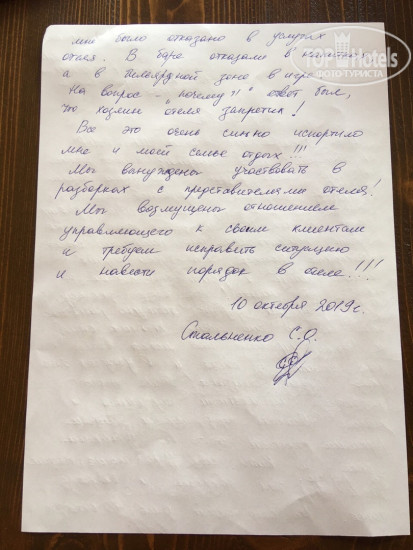 TOP Hotels
ФОТО ТУРИСТА
мне было отказано в услугах
отеля. В баре отказали в напитках
а в бильярдной зоне в игре.
На вопрос - "почему?!" ответ был,
что хозяин отеля запретил!
Все это очень сильно испортило
мне и моей семье отдых!!!
Мы вынуждены участвовать в
разборках с представителями отеля!
Мы возмущены отношением
управляющего к своим клиентам
и требуем исправить ситуацию
и навести порядок в отеле!!!
10 октября 2019г.
Стальненко С.О.